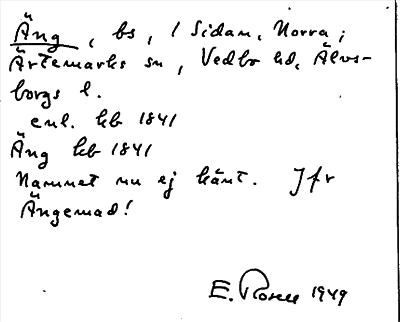 Äng, bs, i Sidan, Norra;
Ärtemarks sn, Vedbo hd, Älvs-
borgs l.
enl. kb 1841
Äng kb 1841
Namnet nu ej känt. Jfr
Ängemad!
E. Rosen 1949